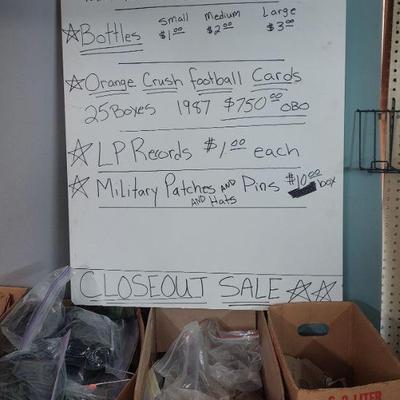 Small Medium Large
☆ Bottles $1.00 $2.00 $3.00
☆ Orange Crush football Cards
25 Boxes 1987 $750.00 OBO
☆ LP Records $1.00 each
☆ Military Patches AND Pins $10.00 box
AND Hats
CLOSEOUT SALE ☆☆
LITER